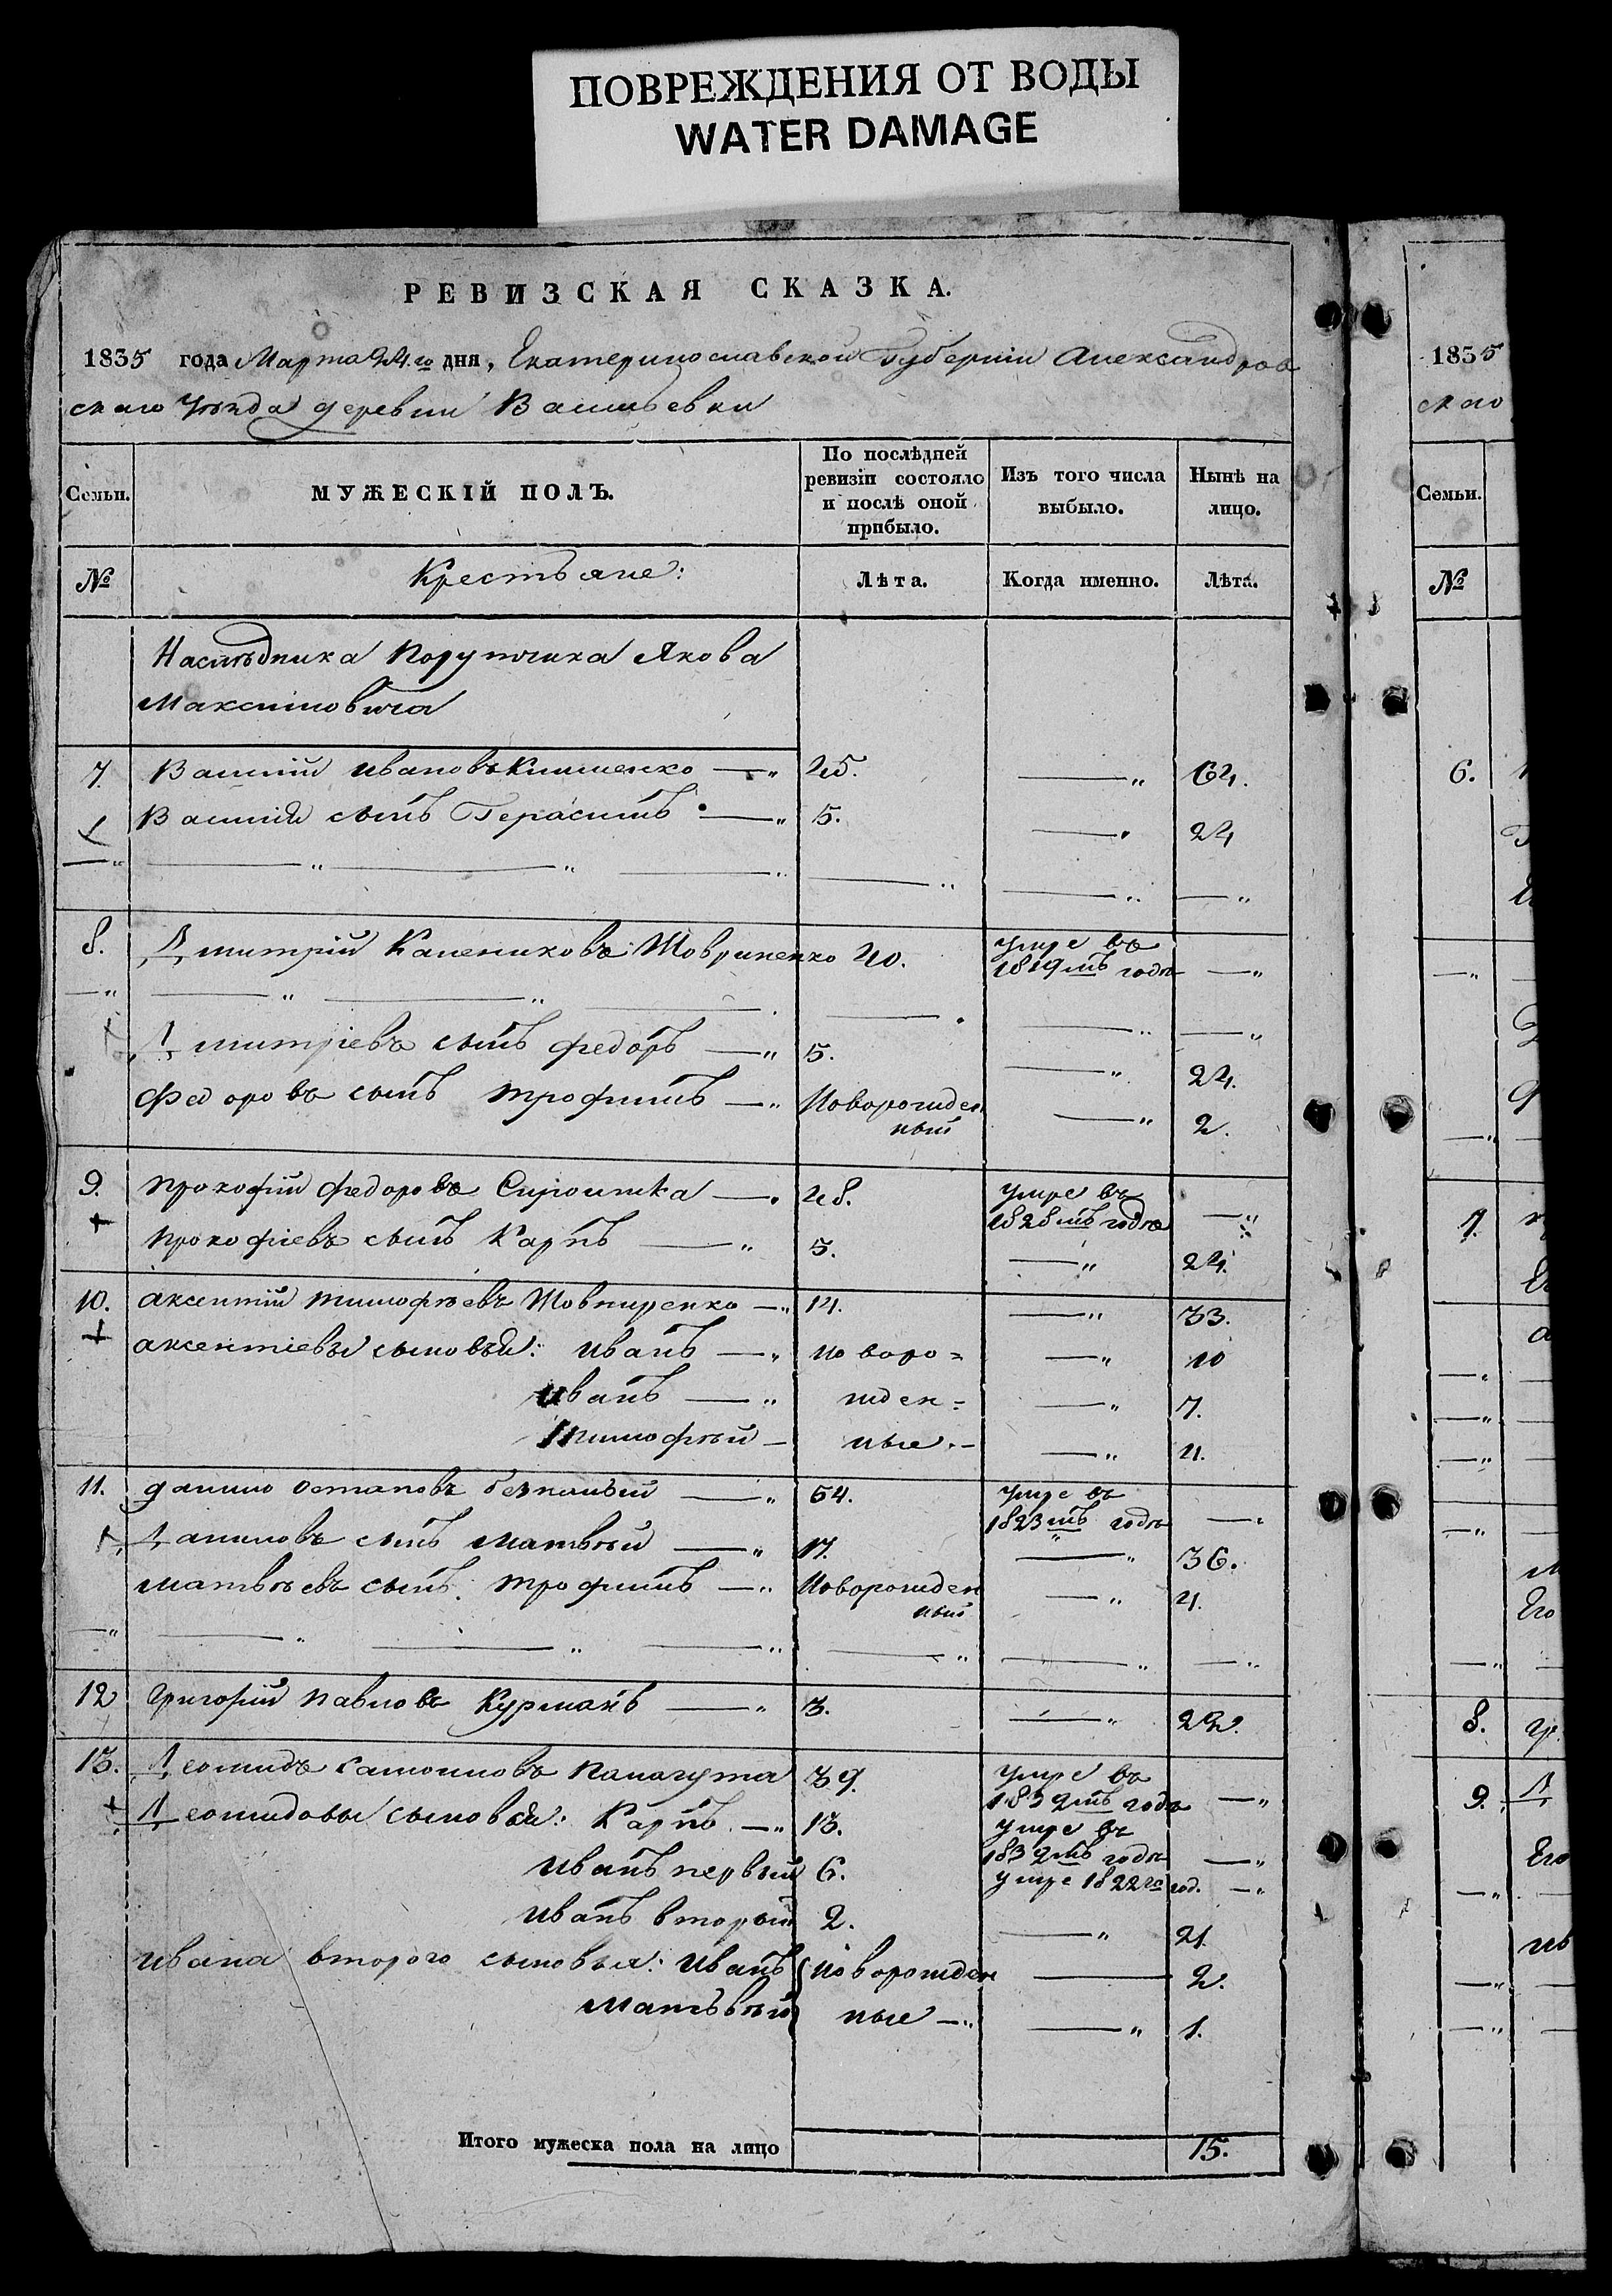 ПОВРЕЖДЕНИЯ ОТ ВОДЫ
WATER DAMAGE
РЕВИЗСКАЯ СКАЗКА.
1835 года Марта 24.го дня, Екатеринославской Губерніи Александров
скаго Уѣзда деревни Васильевки
Семьи. МУЖЕСКІЙ ПОЛЪ. По послѣдней ревизіи состояло и послѣ оной прибыло. Изъ того числа выбыло. Нынѣ на лицо.
№ Крестьяне: Лѣта. Когда именно. Лѣта.
Наслѣдника Порутчика Якова
Максимовича
7. Василий Ивановъ Клименко —„ 45. —„ 64.
Василия сынъ Герасимъ —„ 5. —„ 24
8. Дмитрий Калениковъ Шовприненко 40. умре въ 1819мъ годѣ —„
Дмитріевъ сынъ Федоръ —„ 5. —„ 24.
Федоровъ сынъ Трофимъ —„ Новорожден
ный —„ 2.
9. Прокофий Федоровъ 48. умре въ 1828мъ годѣ —„
Прокофіевъ сынъ Карпъ —„ 5. —„ 24.
10. Аксентий Тимофѣевъ Шовпиренко —„ 14. —„ 33.
Аксентіевы сыновья: Иванъ —„ новоро= —„ 10
Иванъ —„ жден= —„ 7.
Тимофѣй — ные. — —„ 4.
11. Данило Остаповъ 54. умре въ 1823мъ годѣ —„
Даниловъ сынъ Матвѣй —„ 17. —„ 36.
Матвѣевъ сынъ Трофимъ —„ Новорожден
ный —„ 4.
12 Григорий Павловъ Курманъ —„ 3. —„ 22.
13. Леонидъ Самойловъ 39. умре въ 1832мъ годѣ —„
Леонидовы сыновья: Карпъ —„ 13. умре въ 1832мъ годѣ —„
Иванъ первый 6. умре 1822го год. —„
Иванъ вторый 2. —„ 21.
Ивана второго сыновья: Иванъ Новорожден — 2.
Матвѣй ные —„ —„ 1.
Итого мужеска пола на лицо 15.
1835
скаго
Семьи.
№
6.
7.
Его
8.
9.
Его